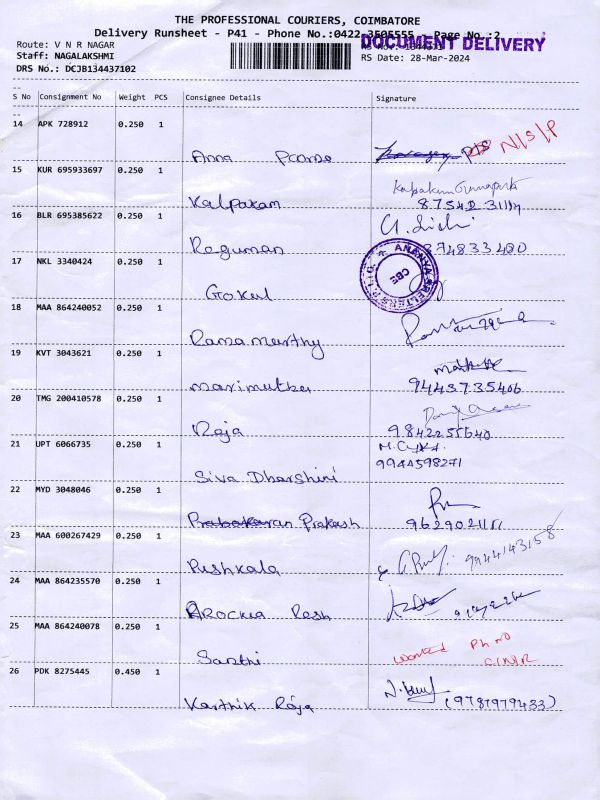 THE PROFESSIONAL COURIERS, COIMBATORE
Delivery Runsheet - P41 - Phone No.:0422-3505555 Page No.:2
DOCUMENT DELIVERY
Route: V N R NAGAR
Staff: NAGALAKSHMI
RS Date: 28-Mar-2024
DRS No.: DCJB134437102
S No Consignment No Weight PCS Consignee Details Signature
14 APK 728912 0.250 1
Anna N/S/P
15 KUR 695933697 0.250 1
Kalpakam
16 BLR 695385622 0.250 1
Reguman 874833480
17 NKL 3340424 0.250 1
Gokul ANANYA SHELTERS P. LTD. CBE
18 MAA 864240052 0.250 1
Rama murthy
19 KVT 3043621 0.250 1
marimuthu 9443735406
20 TMG 200410578 0.250 1
Raja 9842255640
21 UPT 6066735 0.250 1
9944598271
Siva Dharshini
22 MYD 3048046 0.250 1
Prakash
23 MAA 600267429 0.250 1
Pushkala 9944143158
24 MAA 864235570 0.250 1
AROCKIA
25 MAA 864240078 0.250 1
Santhi Ph no
26 PDK 8275445 0.450 1
Karthik Raja (9787979433)